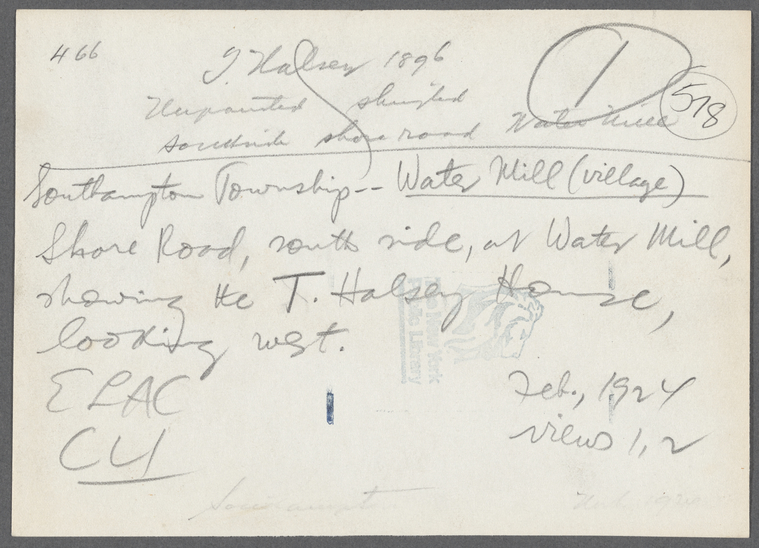 466
T. Halsey 1896
1
578
Unpainted shingled
Southside shore road Water Mill
Southampton Township -- Water Mill (village)
Shore Road, south side, at Water Mill,
showing the T. Halsey House,
looking west.
The New York
Public Library
ELAC
Feb., 1924
CU
views 1, 2